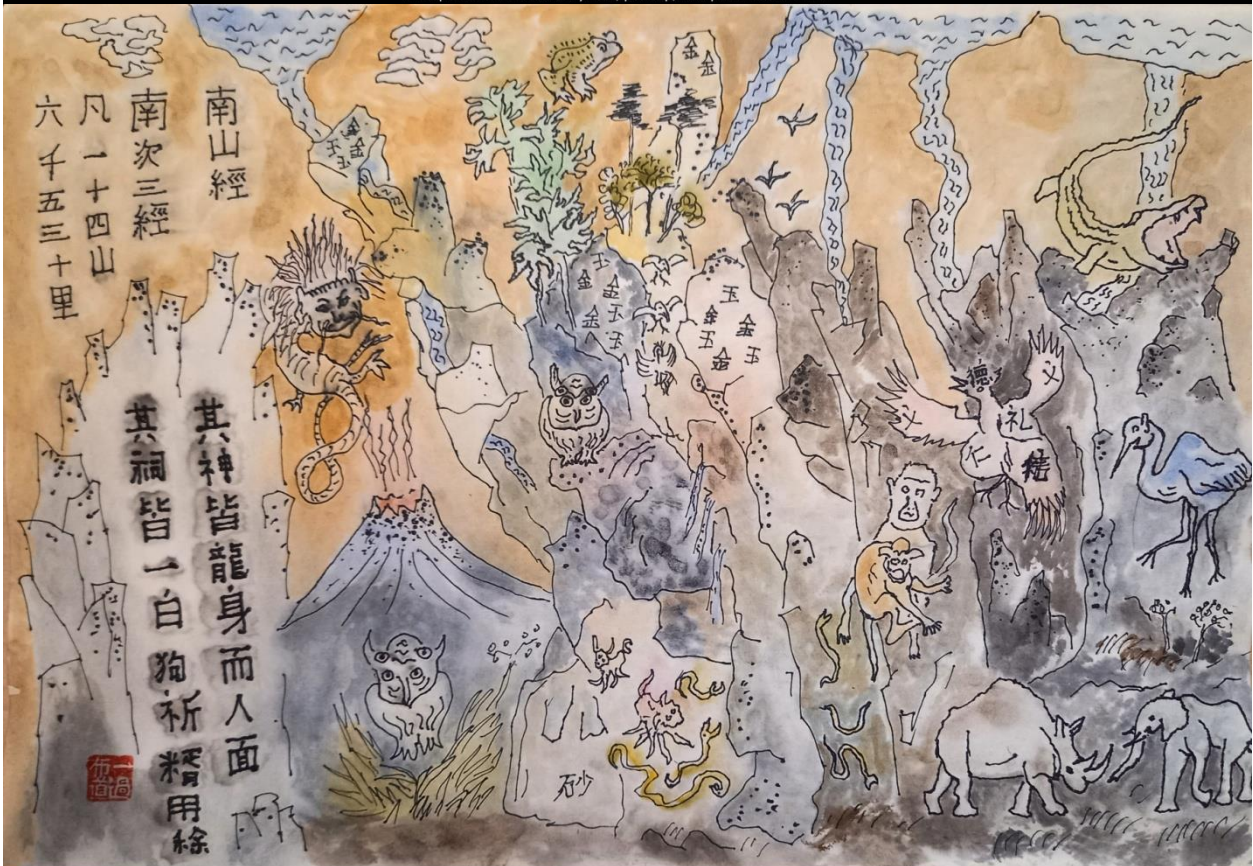 南山經
南次三經
凡一十四山
六千五三十里
其神皆龍身而人面
其祠皆一白狗祈糈用稌
金金
金金玉玉
玉
金金
金玉
玉
玉
金金
玉玉
金
德
义
礼
义
仁
砂